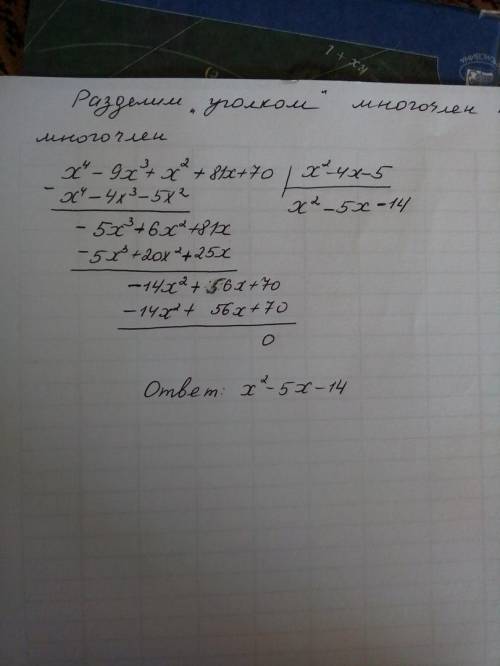 1 + x4
Разделим „уголком" многочлен
многочлен
x⁴ - 9x³ + x² + 81x + 70 | x² - 4x - 5
- x⁴ - 4x³ - 5x²
x² - 5x - 14
- 5x³ + 6x² + 81x
- 5x³ + 20x² + 25x
-14x² + 56x + 70
-14x² + 56x + 70
0
Ответ: x² - 5x - 14